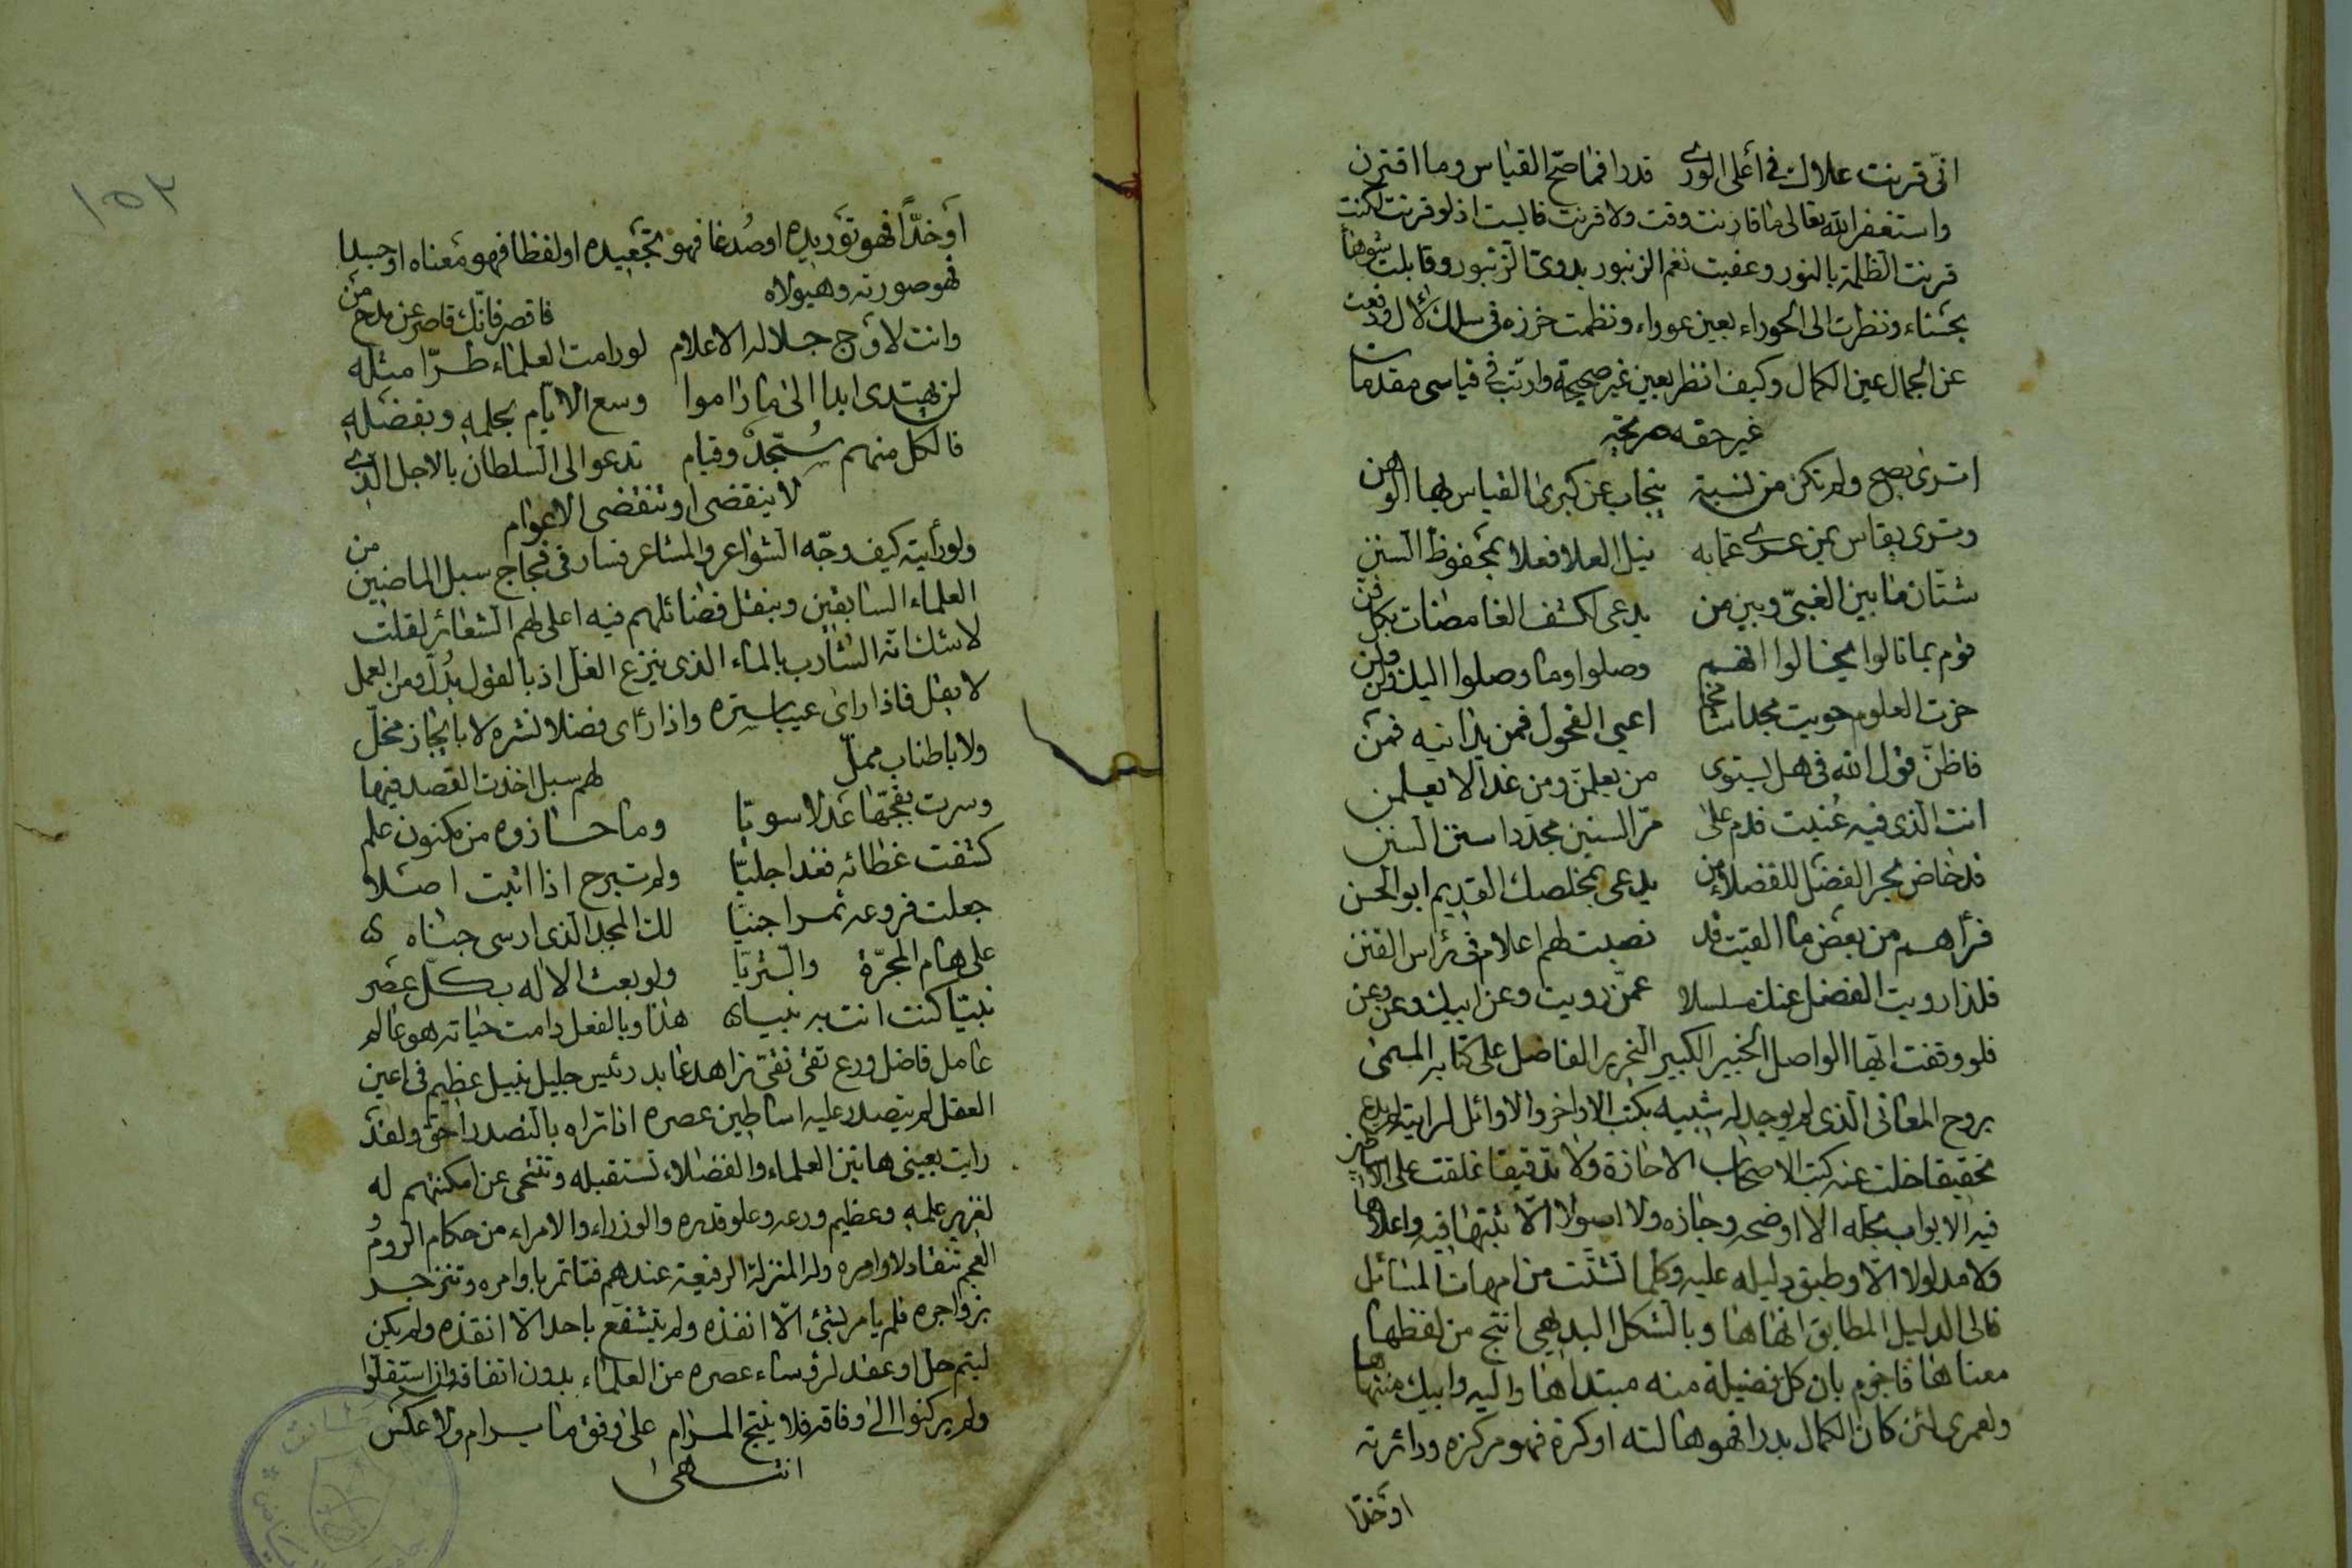 انّى قرنت علاك فى أعلى الورى قدرا فما صحّ القياس وما اقترن
واستغفر الله تعالى ما قارنت وقت ولا قرنت قالست اذ لو قرنت لكنت
قرنت الظلمة بالنور وعفيت نغم الزنبور بدوىّ الزنبور وقابلت شوها
بحسناء ونظرت الى الحوراء بعين عوراء ونظمت خرزه فى سلك لآل ودفعت
عن الجمال عين الكمال وكيف انظر بعين غير صحيحة وارتب فى قياسى مقدمات
غير حقه صريحة
اترى يصح ولم تكن من نسبة ينجاب عن كبرى القياس بها الوهن
وترى يقاس بمن عرى عمابه نيل العلا فعلا بمحفوظ السنن
شتان ما بين الغبىّ وبين من يدعى لكشف الغامضات بكل فن
قوم بما نالوا يخالوا انهم وصلوا وما وصلوا اليك ولن ولن
حزت العلوم حويت مجدا شامخا اعيى الفحول فمن يدانيه فمن
فاظنّ قول الله فى هل يستوى من يعلمن ومن غدا لا يعلمن
انت الذى فيه عنيت فدم على مرّ السنين مجدّدا سنن السنن
قد خاض بحر الفضل للفضلاء من يدعى بمخلصك القديم ابو الحسن
فرأهم من بعض ما القيت قد نصبت لهم اعلام فى رأس القنن
فلذا رويت الفضل عنك مسلسلا عمّن رويت وعن ابيك وعن وعن
فلو وقفت ايها الواصل الخبير الكبير النحرير الفاضل على كتابه المسمى
بروح المعانى الذى لم يوجد له شبيه بكتب الاواخر والاوائل لرايته لم يدع
تحقيقا خلت عنه كتب الاصحاب الا حازه ولا تدقيقا غلقت على الاساطين
فيه الابواب بجله الا اوضحه وجازه ولا اصولا الّا ثبتها فيه واعلاها
ولا مدلولا الّا وطبق دليله عليه وكلما تشتّت من امهات المسائل
فالى الدليل المطابق انهاها وبالشكل البديهى انتج من لفظها
معناها فاجزم بان كل فضيلة منه مبتداها واليه وابيك منتهاها
ولعمرى لئن كان الكمال بدرا فهو هالته او كرة فهو مركزه ودائرته
او خدّا
١٥٢
او خدّا فهو توريده او صدغا فهو تجعيده او لفظا فهو معناه او جسدا
فهو صورته وهيولاه
فاقصر فانّك قاصر عن مدح من
وانت لاوج جلاله الاعلام لو رامت العلماء طرّا مثله
لن يهتدى ابدا الى ما راموا وسع الانام بحلمه وبفضله
فالكل منهم سُجّد وقيام تدعو الى السلطان بالاجل الذى
لا ينقضى او تنقضى الاعوام
ولو رأيته كيف وجّه الشواعر والمشاعر فسار فى فجاج سبل الماضين من
العلماء السابقين وبنقل فضائلهم فيه اعلى لهم الشعائر لقلت
لا شك انه الشارب بالماء الذى ينزع الغلّ اذ بالقول يدلّ ومن العمل
لا يقل فاذا راى عيبا ستره واذا رأى فضلا نشره لا بايجاز مخلّ
ولا باطناب مملّ
لهم سبل اخذت القصد فيها
وسرت بفجّها عدلا سويّا وما حازوه من مكنون علم
كشفت غطائه فغدا جليّا ولم تبرح اذا اثبت اصلا
جعلت فروعه ثمرا جنيّا لك المجد الذى ارسى جباه
على هام المجرّة والثريّا ولو بعث الاله بكل عصر
نبيّا كنت انت به نبيّا هذا وبالفعل دامت حياته هو عالم
عامل فاضل ورع تقى نقى زاهد عابد رئيس جليل نبيل عظيم فى اعين
العقل لم يتصدر عليه اساطين عصره اذا تراه بالتصدر احق ولقد
رايت بعينى هاتين العلماء والفضلاء تستقبله وتتنحى عن امكنتهم له
لغزير علمه وعظيم ورعه وعلو قدره والوزراء والامراء من حكام الروم و
العجم تنقاد لاوامره وله المنزلة الرفيعة عندهم فتاتمر باوامره وتنزجر
بزواجره فلم يامر بشئ الّا انفذه ولم يتشفع باحد الّا انقذه ولم يكن
ليتم حل او عقد لرؤساء عصره من العلماء بدون اتفاقه وان استقلّوا
ولم يركنوا الى وفاقه فلا ينتج المرام على وفق ما يرام ولا عكس
انتهى